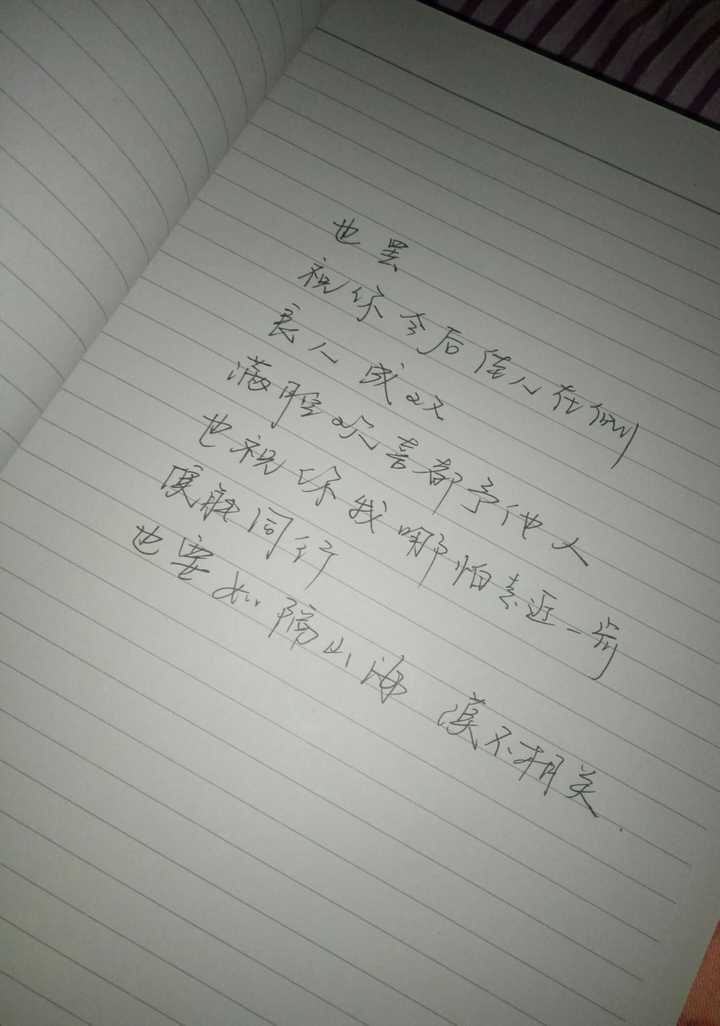 也罢
祝你今后佳人在侧
良人成双
满腔欢喜都予他人
也祝你我哪怕靠近一步
同行
也要如隔山海 漠不相关.